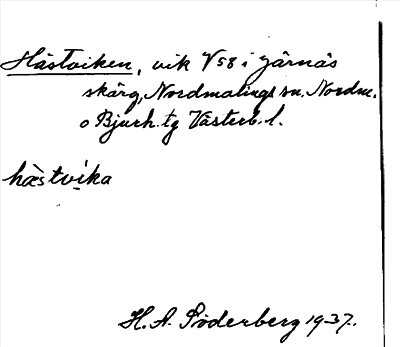 Hästviken, vik V58 i Järnäs
skärg, Nordmalings sn. Nordm.
o Bjurh. tg Västerb. l.
hæ̀stvíka
H. A. Söderberg 1937.